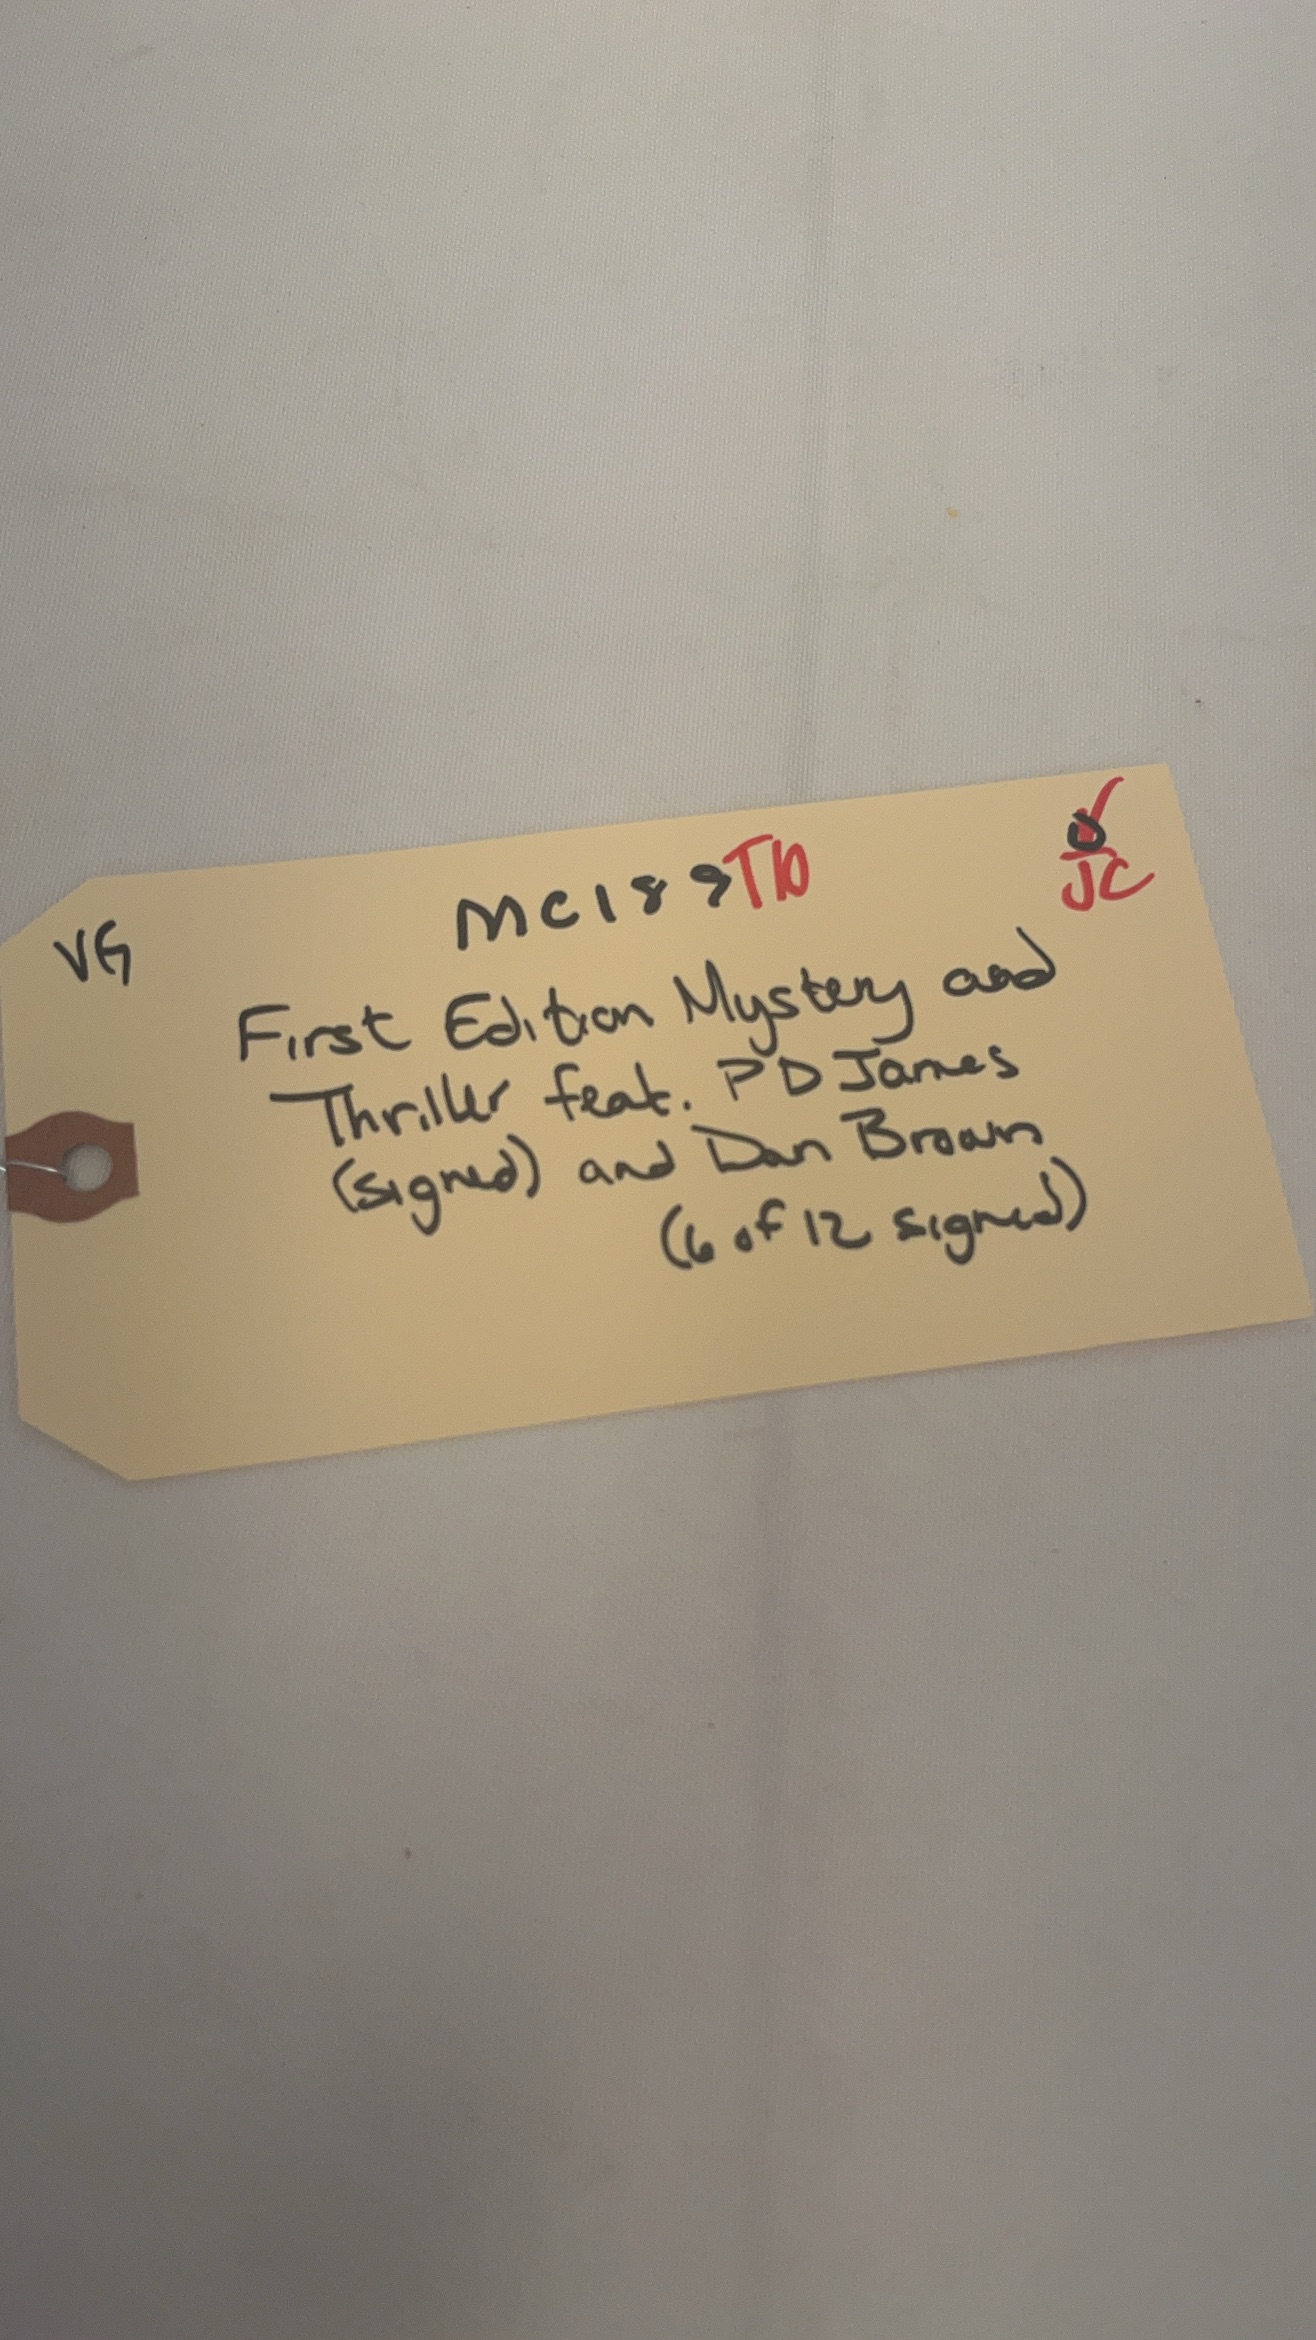 VG
MC189 T10
✓
JC
First Edition Mystery and
Thriller feat. PD James
(signed) and Dan Brown
(6 of 12 signed)